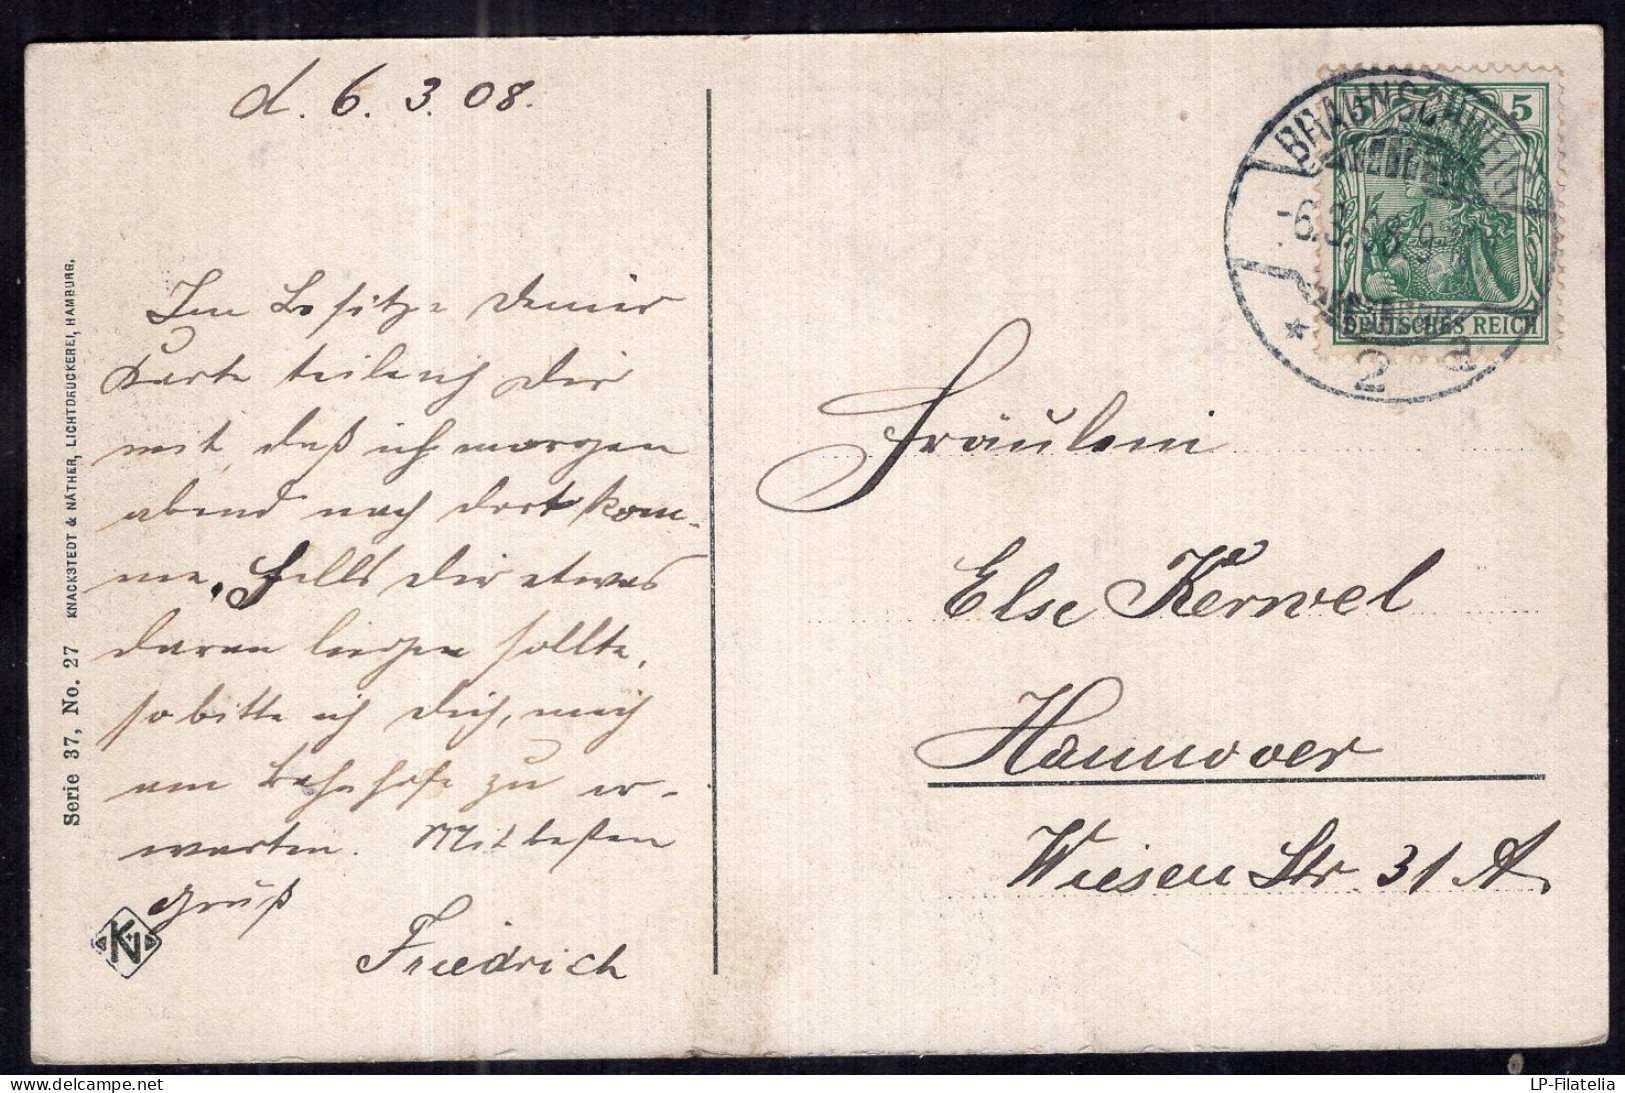 d. 6. 3. 08.
Im Besitze deiner
Karte teile ich dir
mit, daß ich morgen
abend nach dort kom-
me. Falls dir etwas
daran liegen sollte,
so bitte ich dich, mich
am Bahnhofe zu er-
warten. Mit besten
Gruß
Friedrich
Serie 37, No. 27 KNACKSTEDT & NÄTHER, LICHTDRUCKEREI, HAMBURG.
KN
BRAUNSCHWEIG
-6.3.08.9
* 2 a
5 5
DEUTSCHES REICH
Fräulein
Else Kerwel
Hannover
Wiesen Str. 31 A.
LP-Filatelia